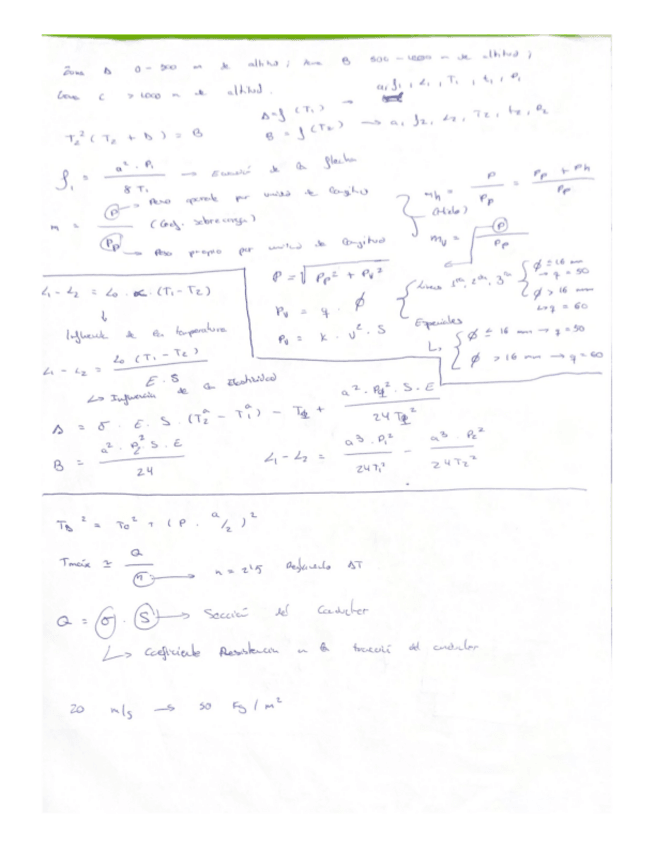 Zona A 0-500 m de altitud; zona B 500-1000 m de altitud;
Zona C > 1000 m de altitud.
A = f (T₁) → a, f₁, L₁, T₁, t₁, P₁
T₂² (T₂ + A) = B
B = f (T₂) → a, f₂, L₂, T₂, t₂, P₂
f₁ = a² · P₁ / 8 T₁ → Ecuación de la flecha
m = P / Pp (Coef. sobrecarga)
P → Peso aparente por unidad de longitud
Pp → Peso propio por unidad de longitud
mh (Hielo) = P / Pp = Pp + Ph / Pp
mv = P / Pp
P = √ Pp² + Pv²
Pv = q · φ
Pv = k · v² · S
Líneas 1ª, 2ª, 3ª
φ ≤ 16 mm → q = 50
φ > 16 mm → q = 60
Especiales
φ ≤ 16 mm → q = 50
φ > 16 mm → q = 60
L₁ - L₂ = L₀ · α · (T₁ - T₂)
Influencia de la temperatura
L₁ - L₂ = L₀ (T₁ - T₂) / E · S
↳ Influencia de la Elasticidad
B = a² · P₂² S · E / 24
L₁ - L₂ = a³ · P₁² / 24 T₁² - a³ · P₂² / 24 T₂²
= T₀² + (P · a/2)²
Tmáx ≃ Q / n → n = 2'5 Reglamento AT
Q = σ · S → Sección del Conductor
↳ Coeficiente Resistencia a la tracción del conductor
20 m/s → 50 Kg / m²